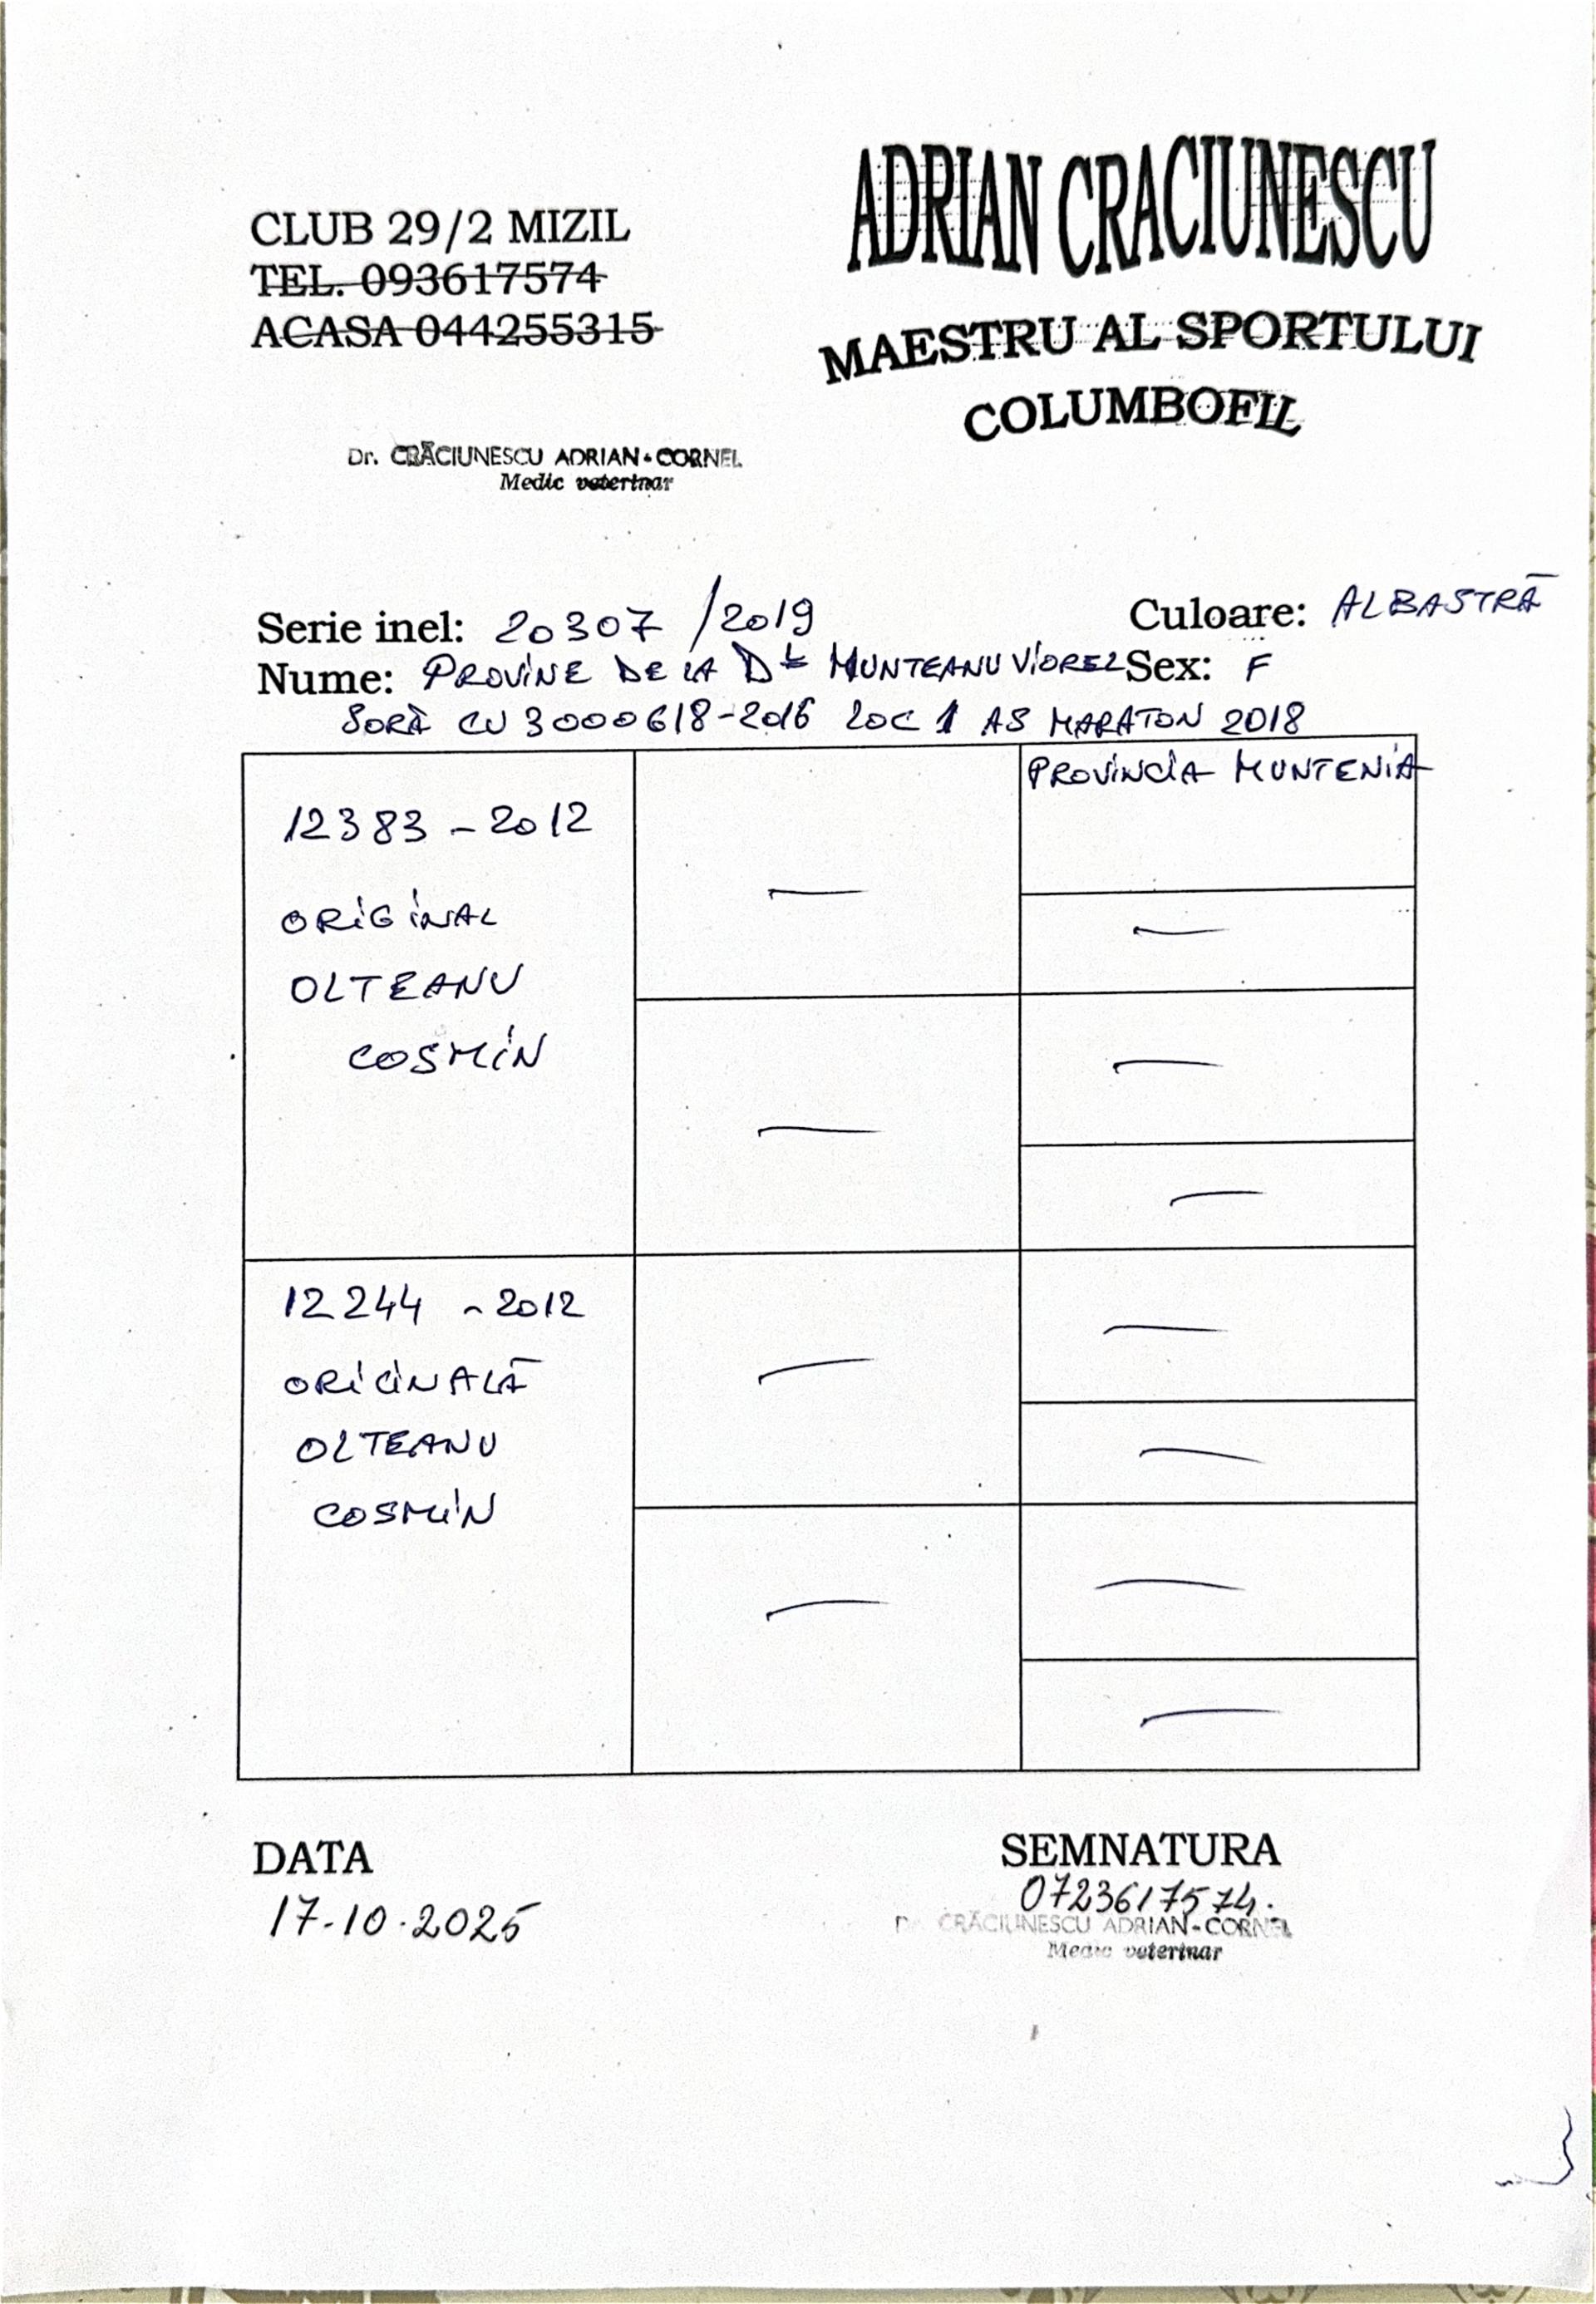 CLUB 29/2 MIZIL
TEL. 093617574
ACASA 044255315
ADRIAN CRACIUNESCU
MAESTRU AL SPORTULUI
COLUMBOFIL
Dr. CRĂCIUNESCU ADRIAN-CORNEL
Medic veterinar
Serie inel: 20307 /2019 Culoare: ALBASTRĂ
Nume: PROVINE DE LA DL MUNTEANU VIOREL Sex: F
SORĂ CU 3000618-2016 LOC 1 AS MARATON 2018
PROVINCIA MUNTENIA
12383 - 2012
ORIGINAL
OLTEANU
COSMIN
12244 - 2012
ORIGINALĂ
OLTEANU
COSMIN
DATA
17.10.2025
SEMNATURA
0723617574.
CRĂCIUNESCU ADRIAN-CORNEL
Medic veterinar